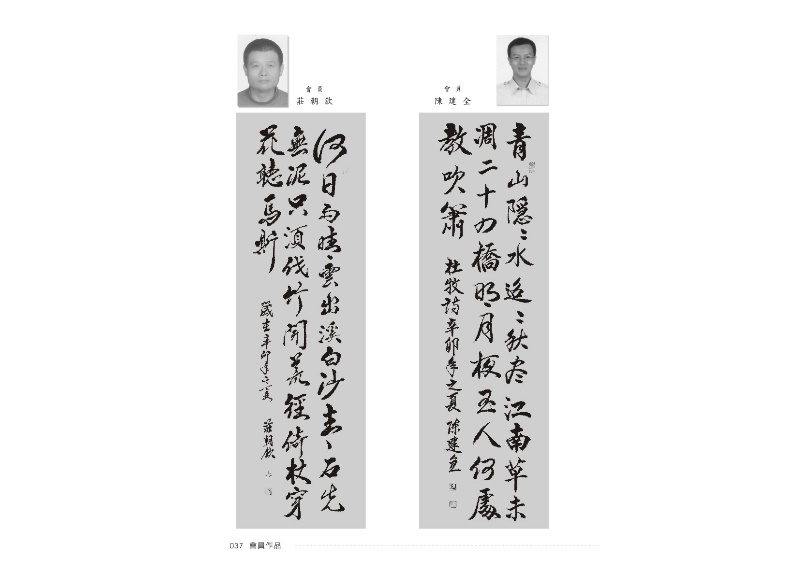 會員
陳建全
青山隱〻水迢〻秋盡江南草未
凋二十四橋明月夜玉人何處
教吹簫
杜牧詩辛卯年之夏 陳建全
會員
莊朝欽
何日雨晴雲出溪白沙青石先
無泥只須伐竹開荒徑倚杖穿
花聽馬斯
歲在辛卯年之夏 莊朝欽
037 會員作品